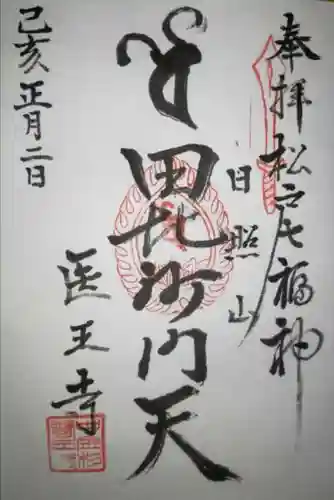 奉拝 松戸七福神
日照山
毘沙門天
医王寺
己亥正月二日